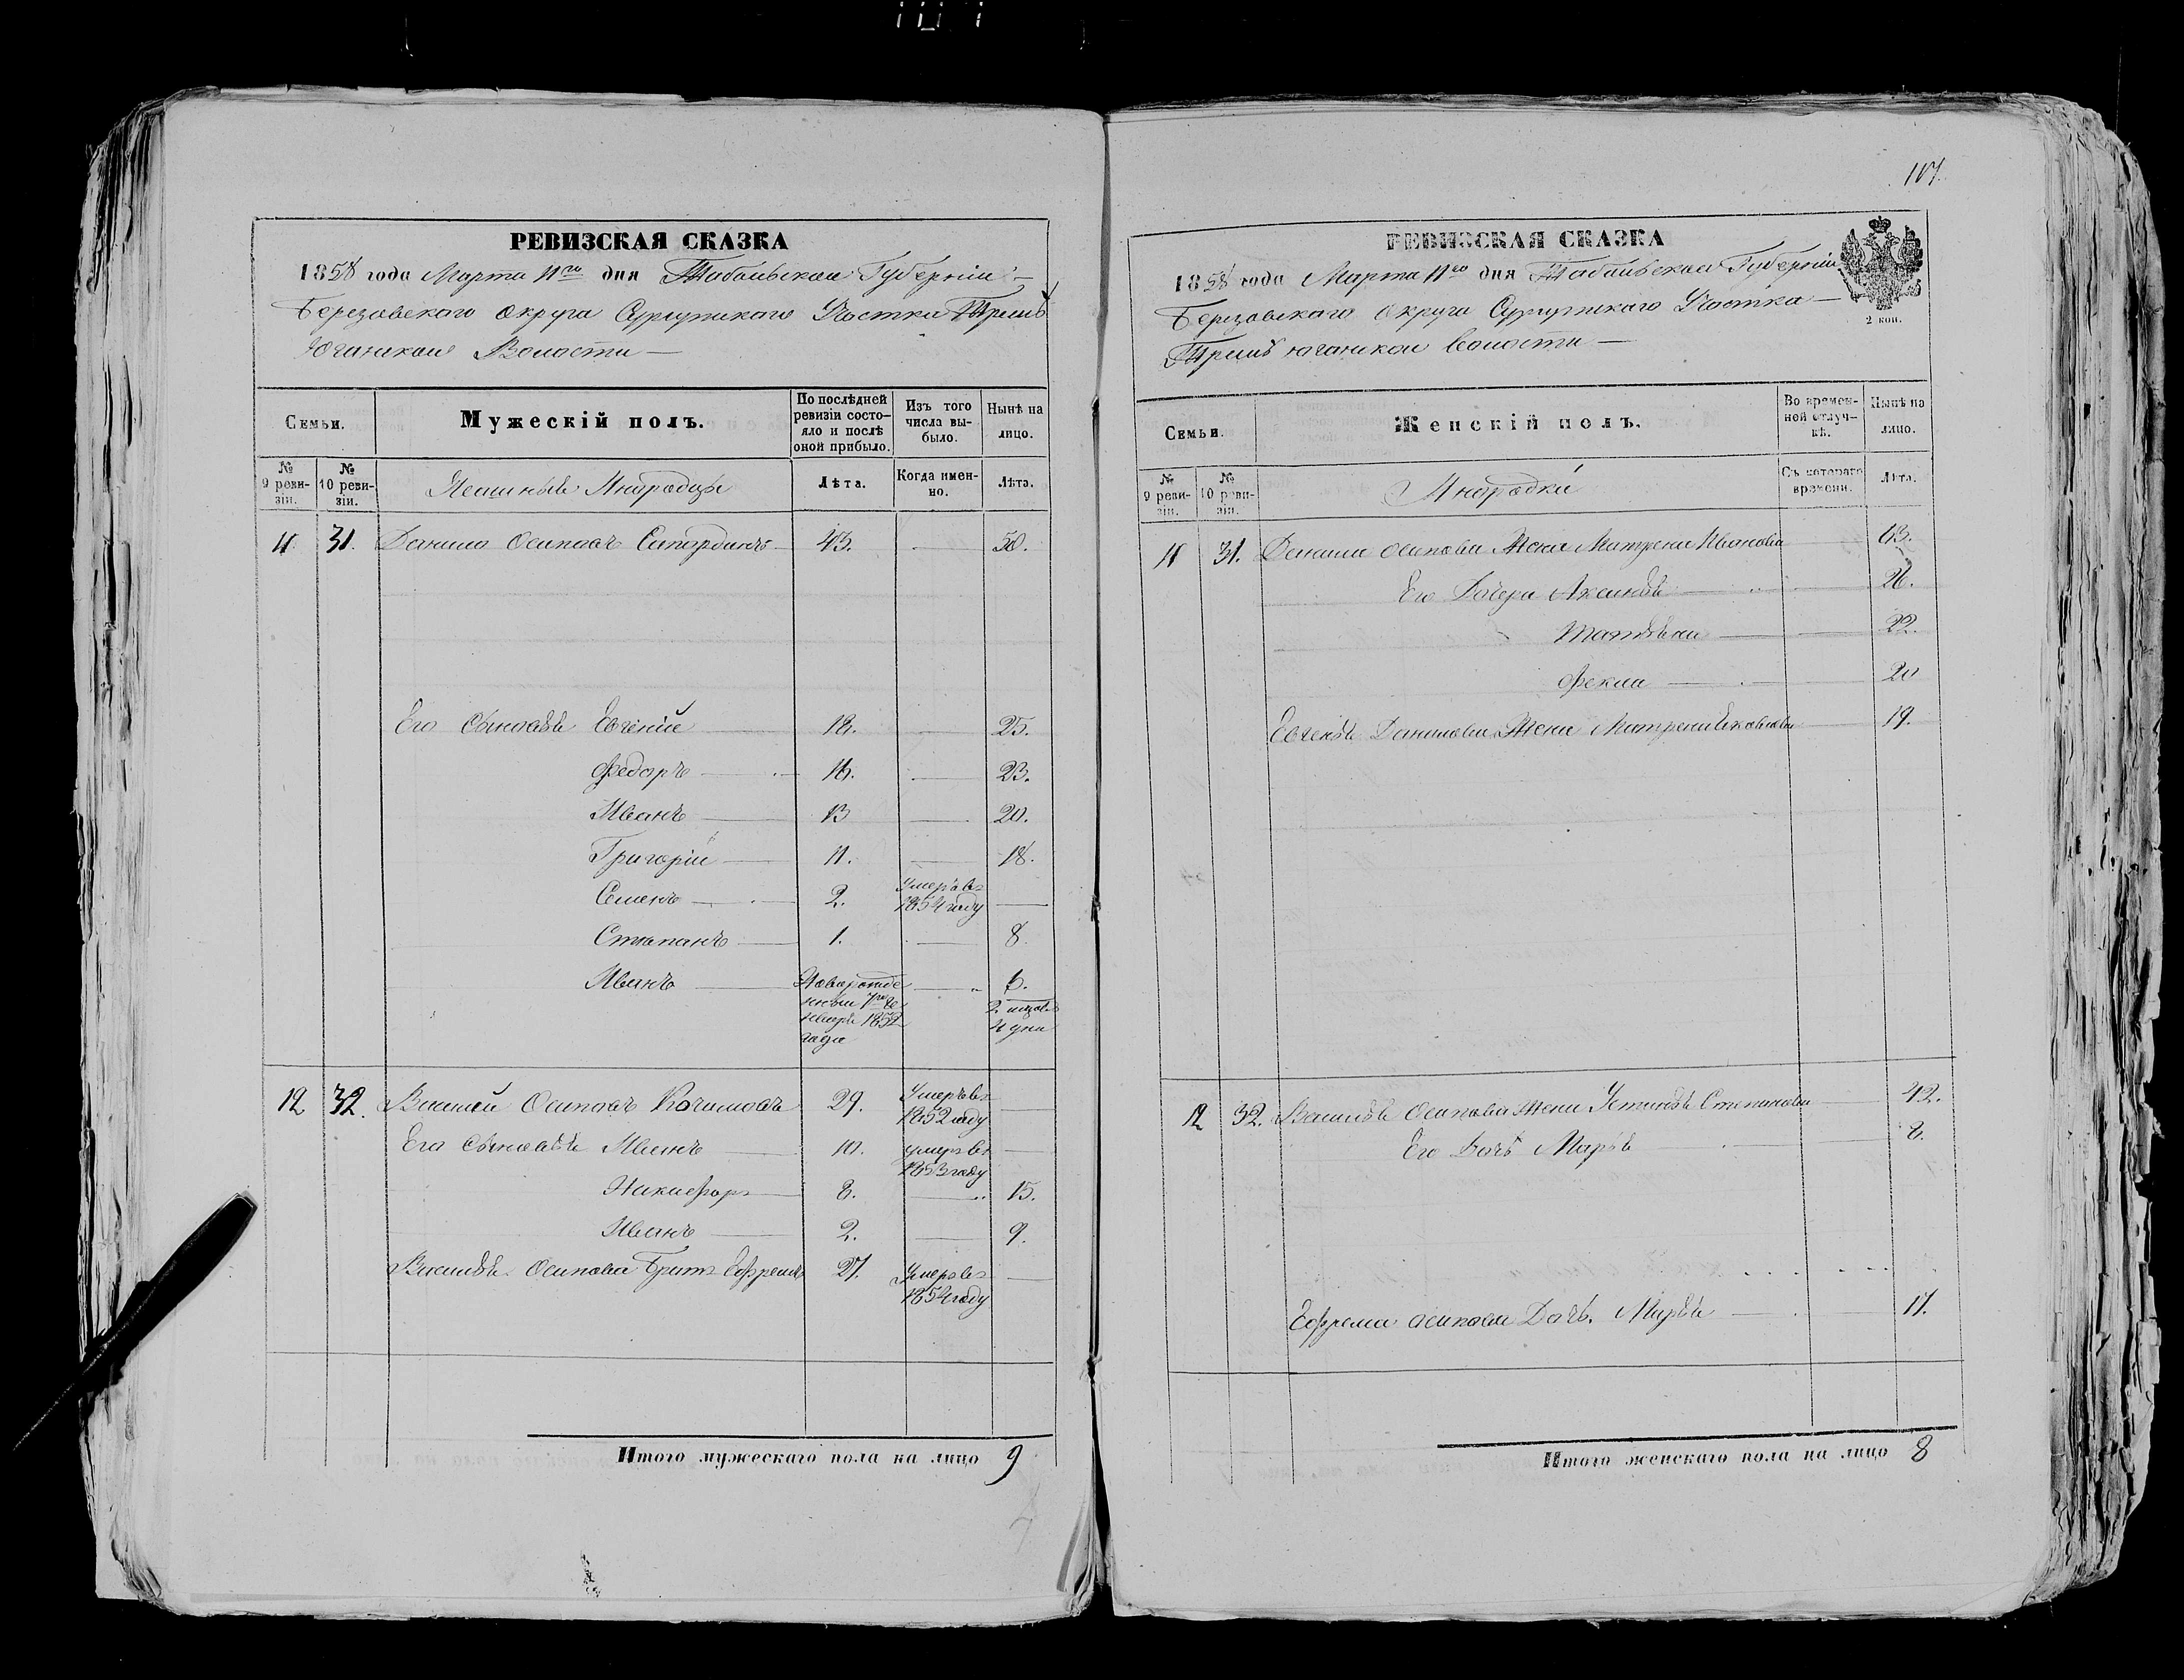 107.
РЕВИЗСКАЯ СКАЗКА
1858 года Марта 11го дня Тобольской Губерніи
Березовскаго Округа Сургутскаго Участка Тремъ
Юганской Волости
Семьи.
Мужескій полъ.
По послѣдней ревизіи состояло и послѣ оной прибыло.
Изъ того числа выбыло.
Нынѣ на лицо.
№ 9 ревизіи.
№ 10 ревизіи.
Ясашные Инородцы
Лѣта.
Когда именно.
Лѣта.
11 31. Данило Осиповъ 43. 50.
Его Сыновья Евгеній 18. 25.
Федоръ 16. 23.
Иванъ 13 20.
Григорій 11. 18.
Семенъ 2. Умеръ въ 1854 году
Степанъ 1. 8.
Иванъ Новорожденный 7го Генваря 1852 года 6. 2 месяца 4 дни
12 32. Василей Осиповъ Кочимовъ 29. Умеръ въ 1852 году
Его Сыновья Иванъ 10. умеръ въ 1853 году
Никифоръ 8. 15.
Иванъ 2. 9.
Василья Осипова Братъ Ефремъ 27. Умеръ въ 1854 году
Итого мужескаго пола на лицо 9
РЕВИЗСКАЯ СКАЗКА
1858 года Марта 11го дня Тобольской Губерніи
Березовскаго Округа Сургутскаго Участка
Тремъ юганской волости
2 коп.
Семьи.
Женскій полъ.
Во временной отлучкѣ.
Нынѣ на лицо.
№ 9 ревизіи.
№ 10 ревизіи.
Инородки
Съ котораго времени.
Лѣта.
11 31. Данила Осипова Жена Матрена Иванова 63.
Его Дочери Аксинья 26.
Татьяна 22.
Фекла 20
Евгенья Данилова Жена Матрена 19.
12 32. Василья Осипова Жена Устинья Степанова 42.
Его Дочь Марья 8.
Ефрема Осипова Дочь. Марья 17.
Итого женскаго пола на лицо 8